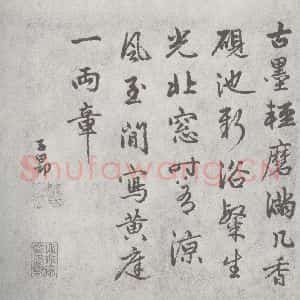 古墨輕磨滿几香
硯池新浴粲生
光北窓時有涼
風至閒寫黄庭
一兩章
子昂
Shufawang.CN